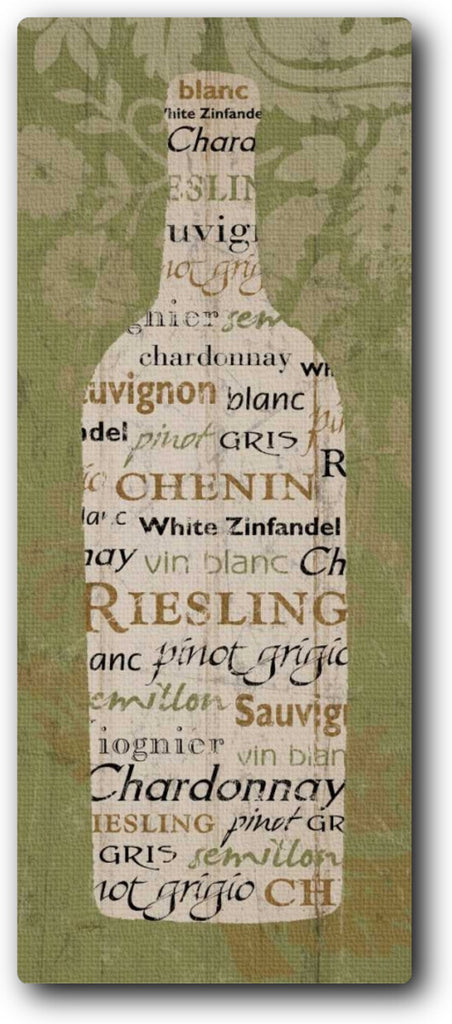 blanc
hite Zinfande
Chard
ESLIN
uvig
not grig
gnier sem
chardonnay Wh
auvignon blanc
ndel pinot GRIS pin
io CHENIN R
lanc White Zinfandel
nay vin blanc Ch
RIESLING
anc pinot grigio
emillon Sauvig
iognier vin blan
Chardonnay
RIESLING pinot GR
GRIS semillon
not grigio CH